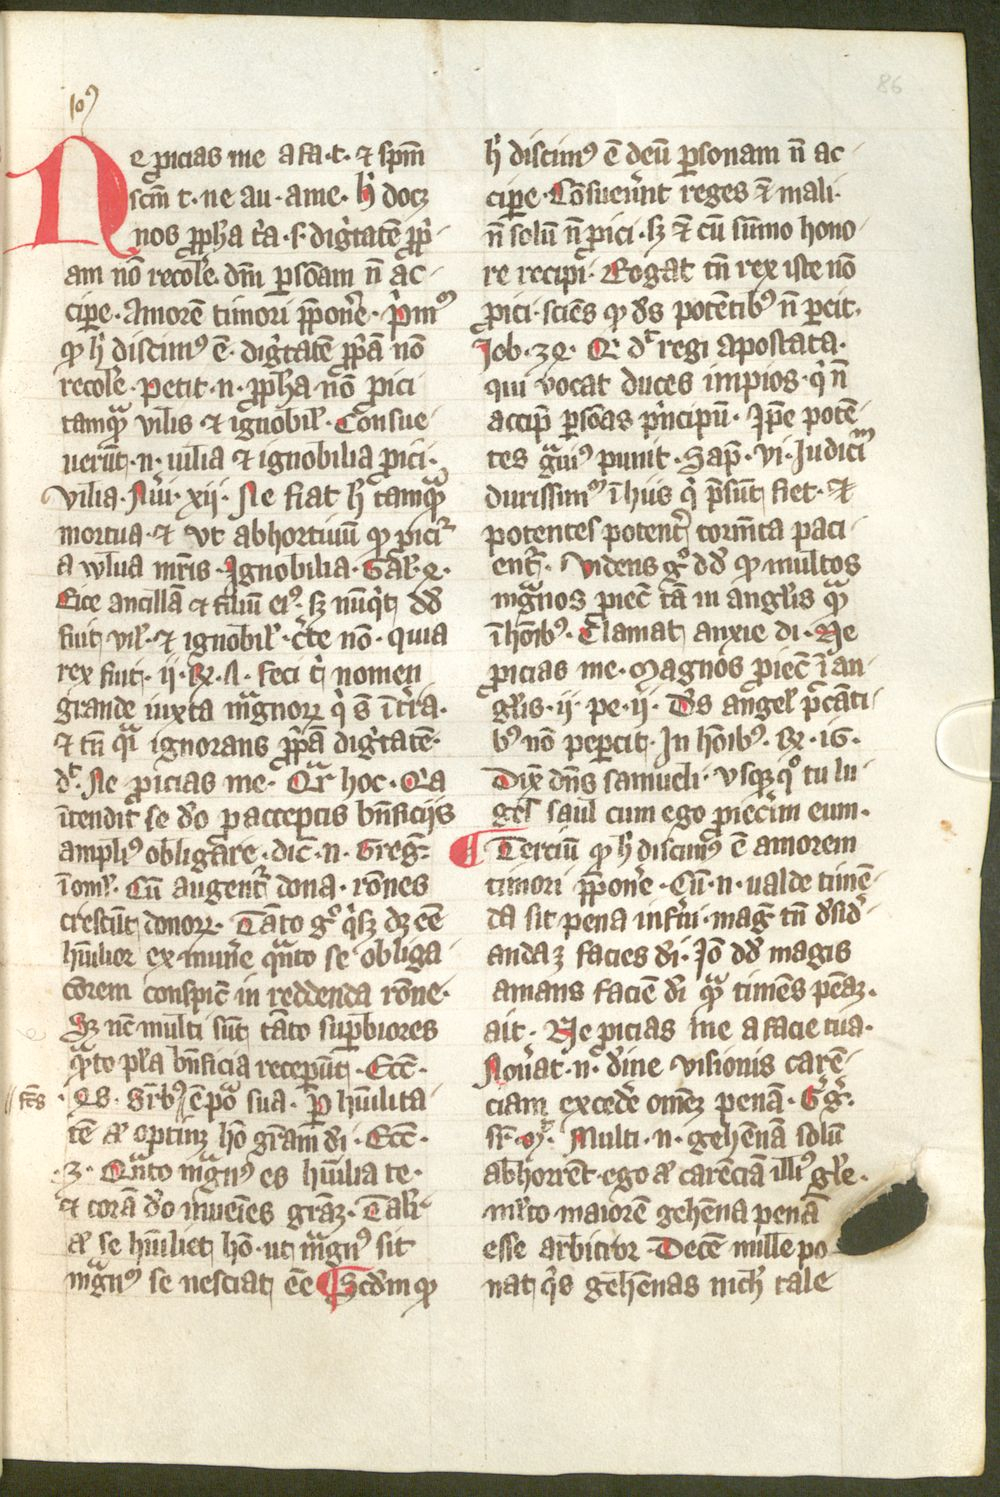 86
10⁹
Ne ꝓicias me a fa · t · ⁊ sp̄m
sc̄m t · ne au · a me · h̄ docꝫ
nos ꝓph̄a t̓a · s · dig̓tatē ꝓp̓
am nō recol̓e · dn̄i ꝑsōam n̄ ac
cipe · Amorē timori p̄pon̓e · P̓m⁹
ꝙ h̓ discim⁹ ē · dig̓tatē ꝓp̓ā nō
recol̓e · Petit · n · ꝓph̄a nō ꝓici
tamqᷓ vilis ⁊ ignobil̓ · Consue
uerūt · n · uilia ⁊ ignobilia ꝓici ·
Vilia · Nūi · xii · Ne fiat h̓ tamqᷓ
mortua · ⁊ vt abhortiuū ꝙ ꝓicit̓
a wlua mr̄is · Ignobilia · Gal̓ · 4 ·
Eice ancillā ⁊ filiū ei⁹ · sꝫ nūq̓t dd̄
fuit vil̓ · ⁊ ignobil̓ · c̓te nō · quia
rex fuit · ii · R̄ · 7 · feci t̓ nomen
grande iuxta mᷓgnoꝝ q̓ s̄ ī t̓ra ·
⁊ tn̄ qᷓi ignorans ꝓp̓ā dig̓tatē ·
d̓t · Ne ꝓicias me · Qr̄ hoc · Qa
ītendit se d̓o ꝑ acceptis bn̄ficiis
ampli⁹ obligare · dic̄ · n · Greg̓ ·
ī om̓ · Cū augent̓ dona · rōnes
crescūt donoꝝ · Tāto gͦ q̓sꝫ dꝫ eē
hūilior ex mun̓e qᷓnto se obliga
tōrem conspic̄ in reddenda rōne ·
Sꝫ nc̄ multi sūt tāto suꝑbiores
qᷓto pl̓a bn̄ficia receꝑūt · Ecc̄ ·
fc̄s
ē pōᷓ sua · Ꝑ hūilita
tē  optinꝫ hō gr̄am di̓ · Ecc̄ ·
3 · Qᷓnto mᷓgn⁹ es hūilia te ·
⁊ corā d̓o inueīes grāꝫ · Tali̓
se hūiliet hō · ut mᷓgn⁹ sit
mᷓgn⁹ se nesciat eē ¶ Scd̄m ꝙ
h̓ discim⁹ ē deū ꝑsonam n̄ ac
cipe · Consueu̓nt reges ēt mali
n̄ solū n̄ ꝓici · sꝫ ēt cū sūmo hono
re recipi · Rogat tn̄ rex iste nō
ꝓici · sciēs ꝙ ds̄ potētib⁹ n̄ ꝑcit ·
Job · 34 · Qr̄ d̓t regi apostata ·
qui vocat duces impios · q̓ n̄
accip̄ ꝑsōas p̓ncipū · Jp̄e potē
tes gᷓui⁹ punit · Sap̄ · vi · Judiciᵐ
durissim⁹ ī hiis q̓ p̄sūt fiet · ⁊
potentes potent̓ torm̄ta paci
ent̓ · Videns gͦ dd̄ ꝙ multos
mᷓgnos ꝓiec̄ tā in angl̓is qᷓ
ī hōib⁹ · Clamat anxie di · Ne
ꝓicias me · Magnos ꝓiec̄ ī an
gl̓is · ii · pe · ii · Ds̄ angel̓ pc̄āti
b⁹ nō peꝑcit · In hōib⁹ · R̄ · 16 ·
Dix̄ dn̄s samueli · vsqꝫ qͦ tu lu
ges̓ saul cum ego ꝓiec̓im eum ·
¶ Terciū ꝙ h̓ discim⁹ ē amorem
timori p̄pon̓e · Cū · n · ualde timē
da sit pena inf̓ni · mag̓ tn̄ d̓sid̓
andaꝫ facies di̓ · Jō dd̄ magis
amans faciē di̓ qᷓ timēs penāꝫ ·
ait · Ne ꝓicias me a facie tua ·
Nou̓at · n · d̓ine visionis carē
ciam exced̓e om̄eꝫ penā ·
Multi · n · gehēnā solū
abhorrēt · ego  carēciā illi⁹ gl̓e ·
ml̓to maiorē gehēna penā
esse arbitror · Decē mille po
nat q̓s gehēnas nich̓ tale